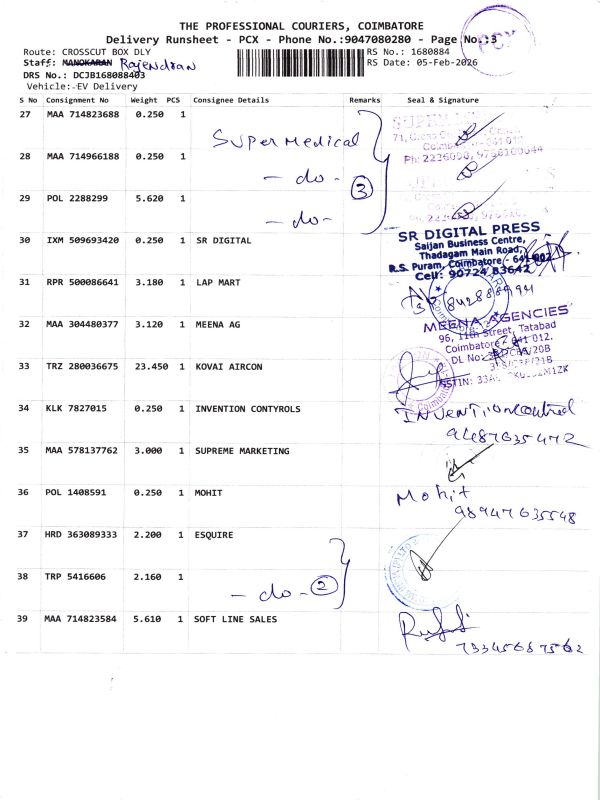 THE PROFESSIONAL COURIERS, COIMBATORE
Delivery Runsheet - PCX - Phone No.:9047080280 - Page No.:3
PCX
Route: CROSSCUT BOX DLY
RS No.: 1680884
Staff: MANOKARAN Rajendran
RS Date: 05-Feb-2026
DRS No.: DCJB168088403
Vehicle: EV Delivery
S No Consignment No Weight PCS Consignee Details Remarks Seal & Signature
27 MAA 714823688 0.250 1 Super Medical
28 MAA 714966188 0.250 1 - do - 3
29 POL 2288299 5.620 1 - do -
30 IXM 509693420 0.250 1 SR DIGITAL
SR DIGITAL PRESS
Saijan Business Centre,
Thadagam Main Road,
R.S. Puram, Coimbatore - 641 002
Cell: 90724 83642
31 RPR 500086641 3.180 1 LAP MART
32 MAA 304480377 3.120 1 MEENA AG
MEENA AGENCIES
96, 11th Street, Tatabad
Coimbatore - 641 012.
33 TRZ 280036675 23.450 1 KOVAI AIRCON
34 KLK 7827015 0.250 1 INVENTION CONTYROLS
Invention control
9487635472
35 MAA 578137762 3.000 1 SUPREME MARKETING
36 POL 1408591 0.250 1 MOHIT
Mohit
98947635548
37 HRD 363089333 2.200 1 ESQUIRE
38 TRP 5416606 2.160 1 - do - 2
39 MAA 714823584 5.610 1 SOFT LINE SALES